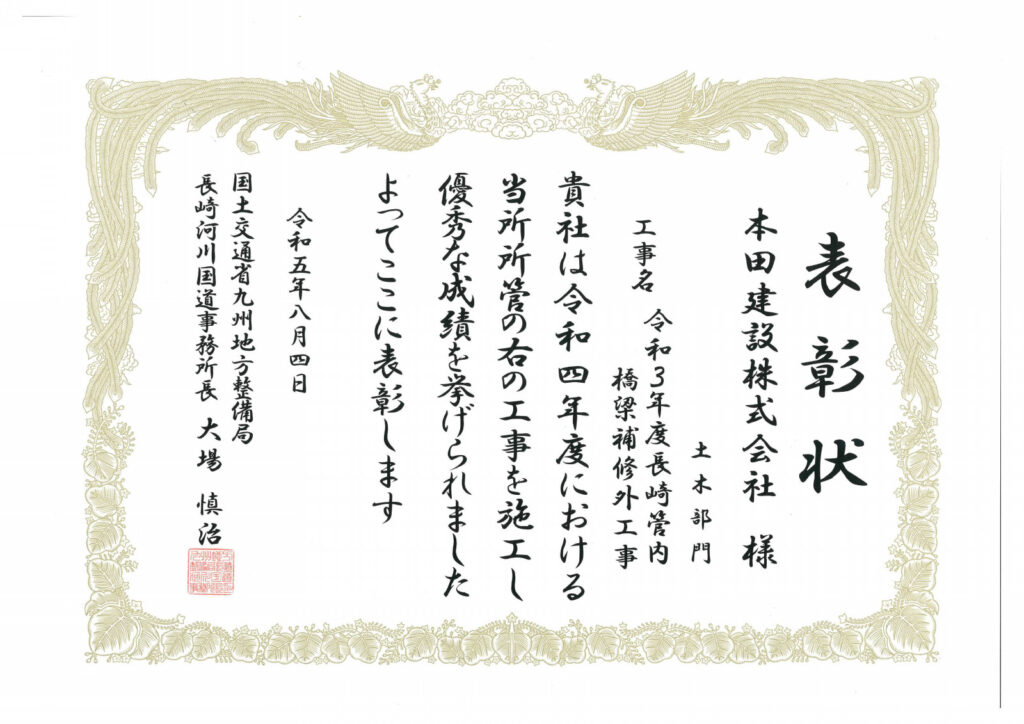 表彰状
本田建設株式会社 様
土木部門
工事名 令和3年度長崎管内
橋梁補修外工事
貴社は令和四年度における
当所所管の右の工事を施工し
優秀な成績を挙げられました
よってここに表彰します
令和五年八月四日
国土交通省九州地方整備局
長崎河川国道事務所長 大場 慎治